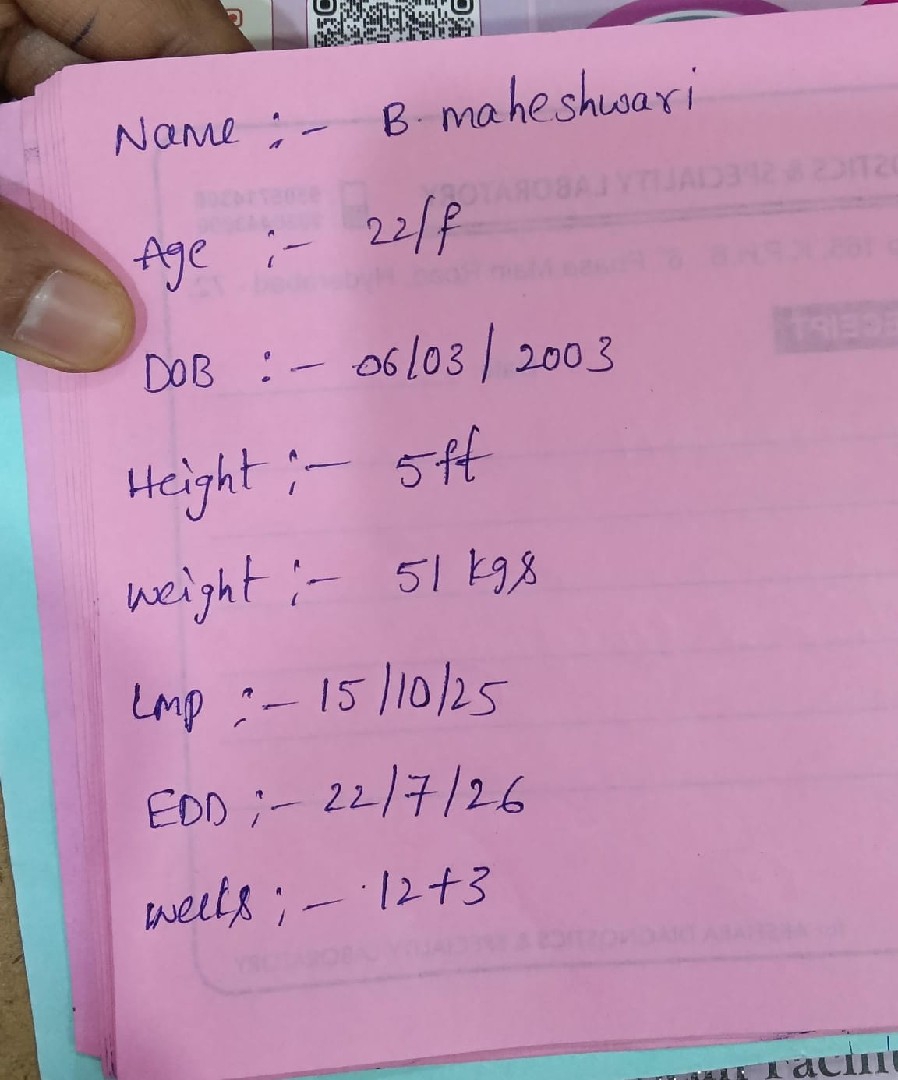 Name :- B. maheshwari
Age :- 22/f
DOB :- 06/03/2003
Height :- 5ft
weight :- 51 kgs
LMP :- 15/10/25
EDD :- 22/7/26
weeks :- 12+3